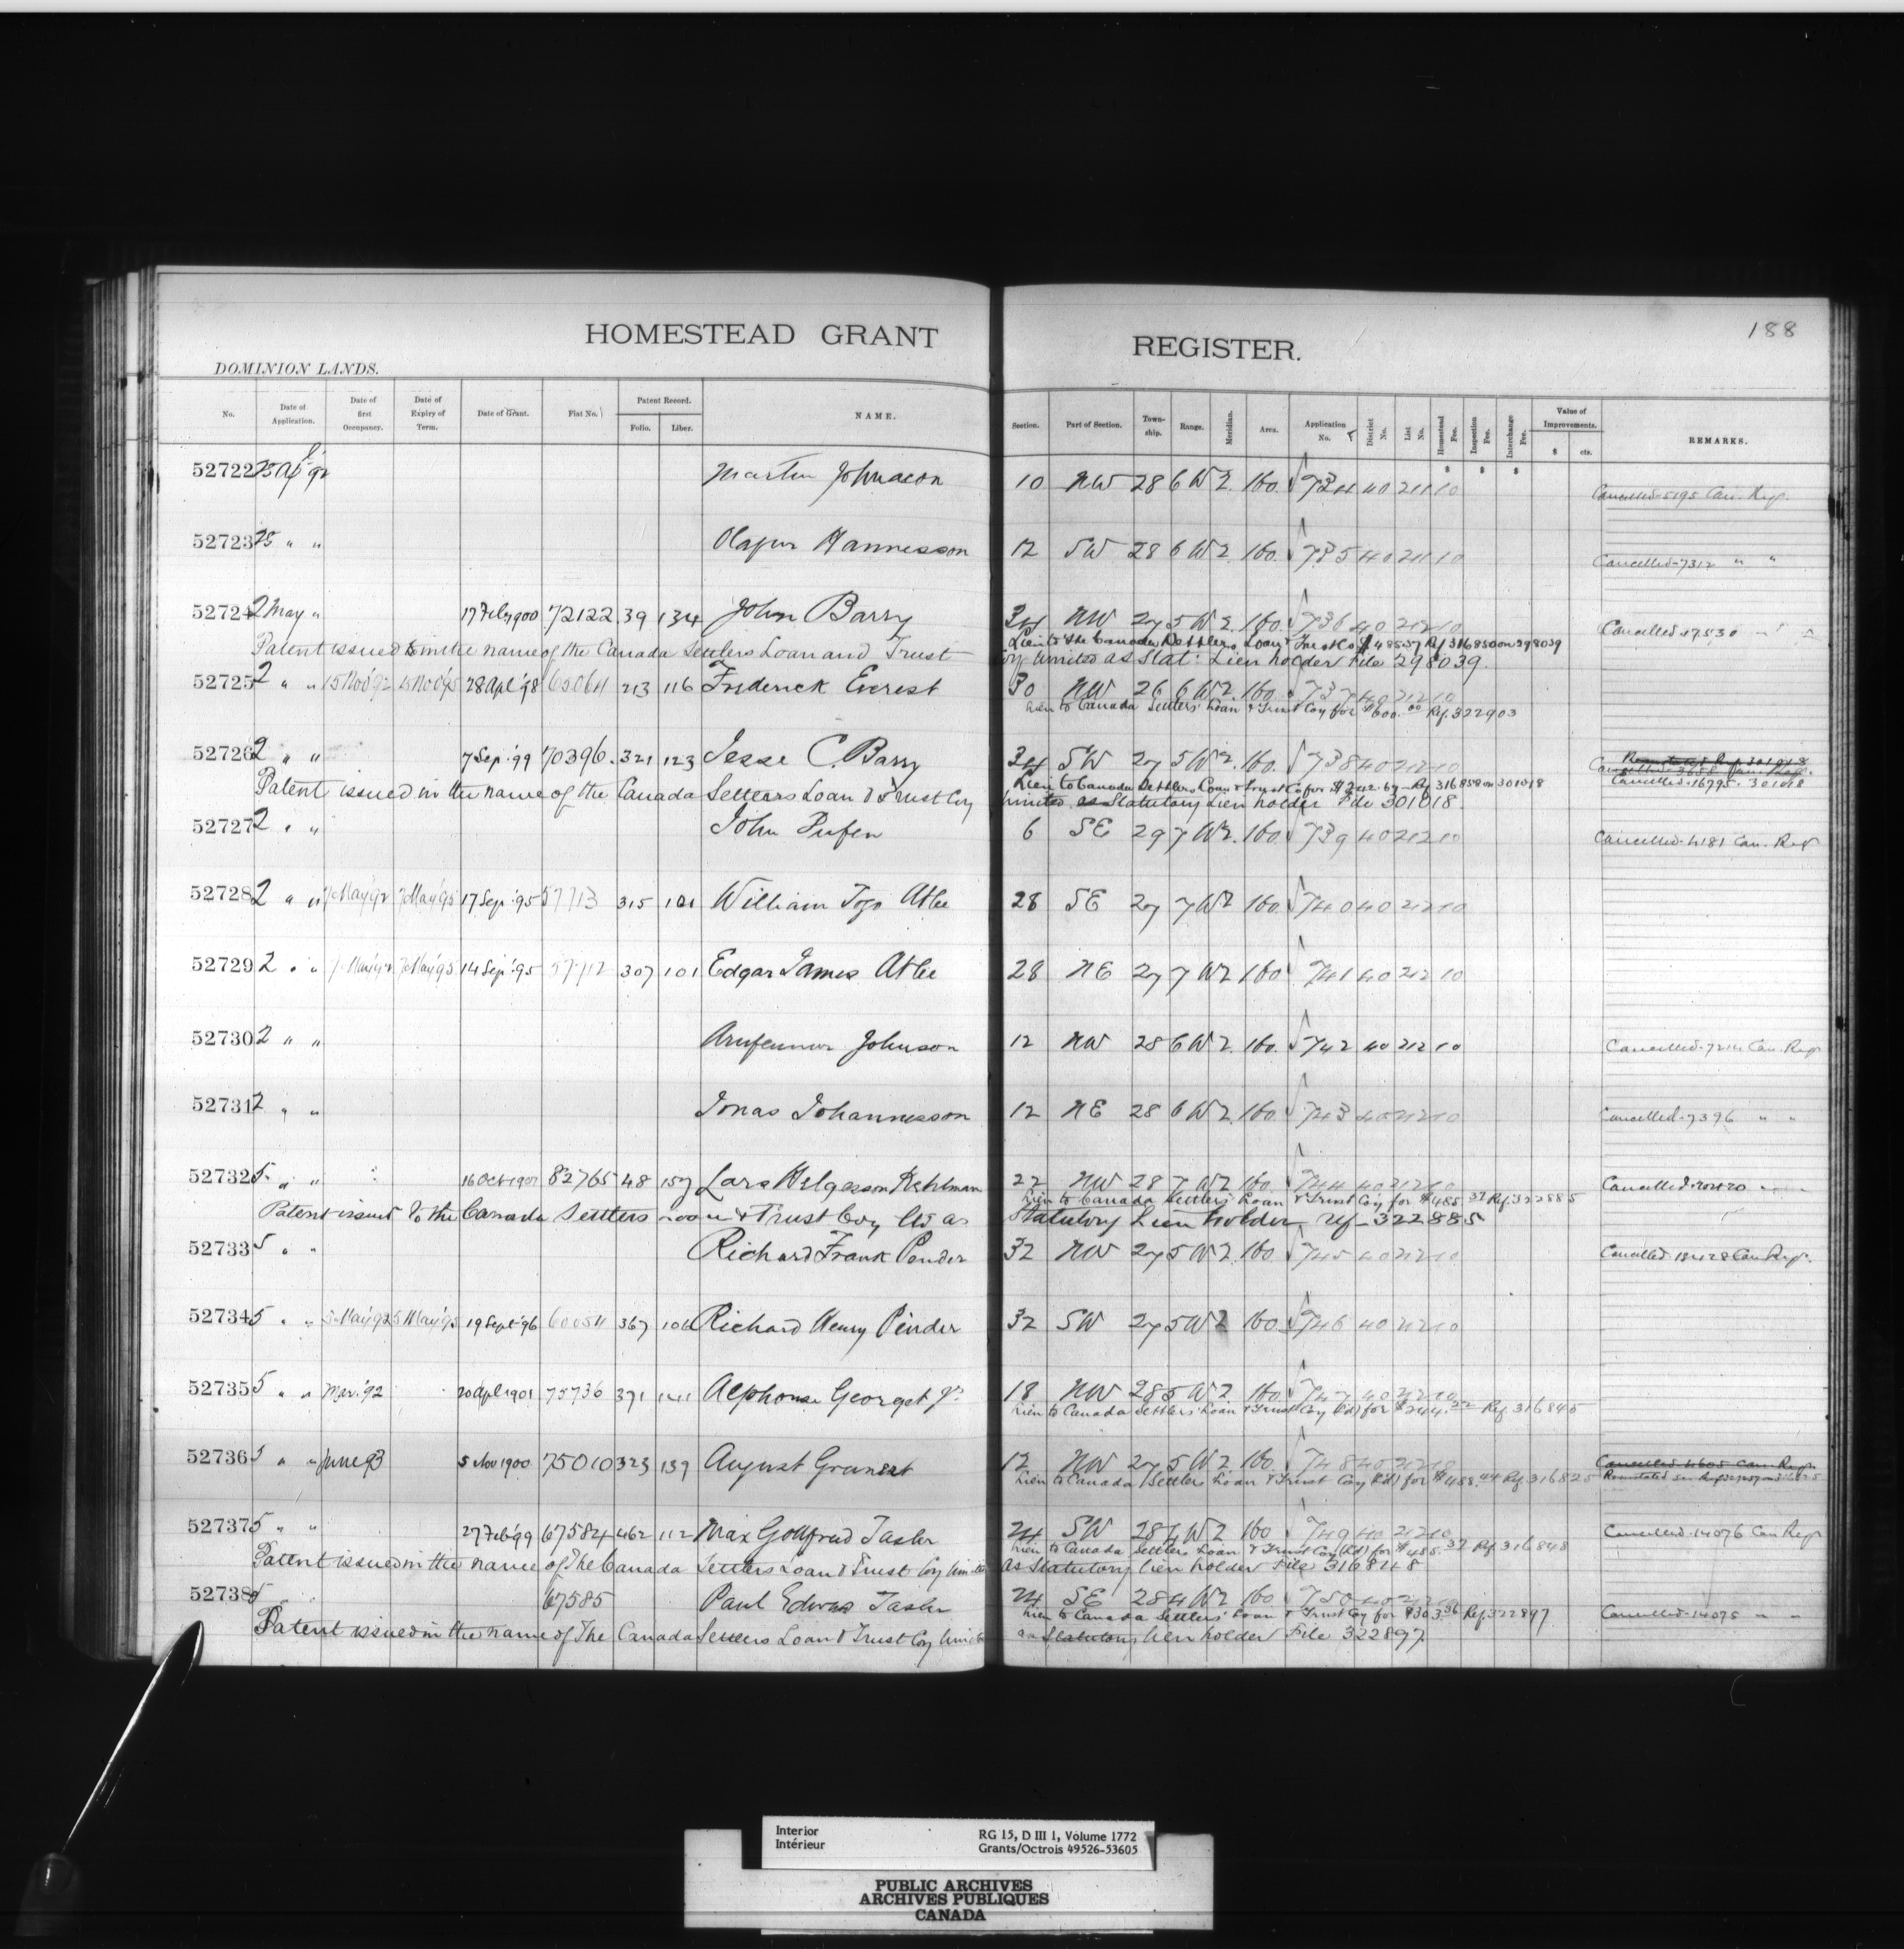 188
HOMESTEAD GRANT REGISTER.
DOMINION LANDS.
No. Date of Application. Date of first Occupancy. Date of Expiry of Term. Date of Grant. Fiat No. Patent Record. Folio. Liber. NAME. Section. Part of Section. Township. Range. Meridian. Area. Application No. District No. List No. Homestead Fee. Inspection Fee. Interchange Fee. Value of Improvements. $ cts. REMARKS.
$ $ $
52722 25 Apl 92 Martin Johnson 10 NW 28 6 W 2. 160. 734 40 211 10 Cancelled 5195 Can. Reg.
52723 25 " " Olafur Hannesson 12 SW 28 6 W 2. 160. 735 40 211 10 Cancelled 7312 " "
52724 2 May " 17 Feby 1900 72122 39 134 John Barry 34 NW 27 5 W 2. 160. 736 40 212 10 Cancelled 17530
Lien to the Canada Settlers Loan & Trust Co $485.37 Ref 316850 on 298039
Patent issued in the name of the Canada Settlers Loan and Trust Coy limited as Stat: Lien holder File 298039.
52725 2 " " 15 Nov '92 15 Nov '95 28 Apl '98 65064 213 116 Frederick Everest 30 NW 26 6 W 2. 160. 737 40 212 10
Lien to Canada Settlers' Loan & Trust Coy for $600.00 Ref. 322903
52726 2 " " 7 Sep '99 70396. 321 123 Jesse C. Barry 34 SW 27 5 W 2. 160. 738 40 212 10 Cancelled 16795. 301018
Lien to Canada Settlers Loan & Trust Co for $242.67 Ref 316858 on 301018
Patent issued in the name of the Canada Settlers Loan & Trust Coy limited as Statutory Lien holder File 301018.
52727 2 " " John Pufen 6 SE 29 7 W 2. 160. 739 40 212 10 Cancelled 4181 Can. Reg
52728 2 " " 7 May '92 7 May '95 17 Sep '95 57713 315 101 William Togo Atlee 28 SE 27 7 W 2 160. 740 40 212 10
52729 2 " " 7 May '92 7 May '95 14 Sep '95 57712 307 101 Edgar James Atlee 28 NE 27 7 W 2 160 741 40 212 10
52730 2 " " Johnson 12 NW 28 6 W 2. 160. 742 40 212 10 Cancelled 7214 Can. Reg
52731 2 " " Jonas Johannesson 12 NE 28 6 W 2. 160. 743 40 212 10 Cancelled 7396 " "
52732 5 " " 16 Oct 1901 82765 48 157 Lars Helgesson 22 NW 28 7 W 2 160. 744 40 212 10 Cancelled 20420
Lien to Canada Settlers' Loan & Trust Coy for $485.37 Ref. 322885
Patent issued to the Canada Settlers Loan & Trust Coy Ltd as Statutory Lien holder Ref 322885
52733 5 " " Richard Frank Pender 32 NW 27 5 W 2. 160. 745 40 212 10 Cancelled 12428 Can Reg.
52734 5 " " 5 May '92 5 May '95 19 Sept '96 60054 367 106 Richard Henry Pender 32 SW 27 5 W 2 160 746 40 212 10
52735 5 " " Mar. '92 20 Apl 1901 75736 371 141 Alphonse Georget Jr 18 NW 28 5 W 2 160 747 40 212 10
Lien to Canada Settlers' Loan & Trust Coy (Ld) for $244.22 Ref. 316845
52736 5 " " June 93 5 Nov 1900 75010 323 139 August Grunert 12 NW 27 5 W 2 160. 748 40 212 10 Cancelled 4605 Can. Reg.
Lien to Canada Settlers Loan & Trust Coy (Ld) for $488.44 Ref. 316825
52737 5 " " 27 Feb '99 67584 462 112 Max Gottfried Tasler 24 SW 28 4 W 2 160 749 40 212 10 Cancelled 14076 Can Reg
Lien to Canada Settlers Loan & Trust Coy (Ld) for $485.37 Ref. 316848
Patent issued in the name of The Canada Settlers Loan & Trust Coy limited as Statutory lien holder File 316848
52738 5 67585 Paul Edwin Tasler 24 SE 28 4 W 2 160 750 40 212 10 Cancelled 14075 " "
Lien to Canada Settlers' Loan & Trust Coy for $303.36 Ref 322897
Patent issued in the name of The Canada Settlers Loan & Trust Coy limited as Statutory lien holder File 322897
Interior
Intérieur
RG 15, D III 1, Volume 1772
Grants/Octrois 49526-53605
PUBLIC ARCHIVES
ARCHIVES PUBLIQUES
CANADA